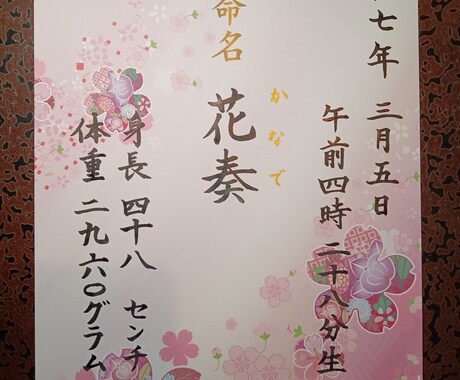 七年 三月五日
午前四時二十八分生
命名 花奏
かなで
身長 四十八 センチ
体重 二九六〇グラム